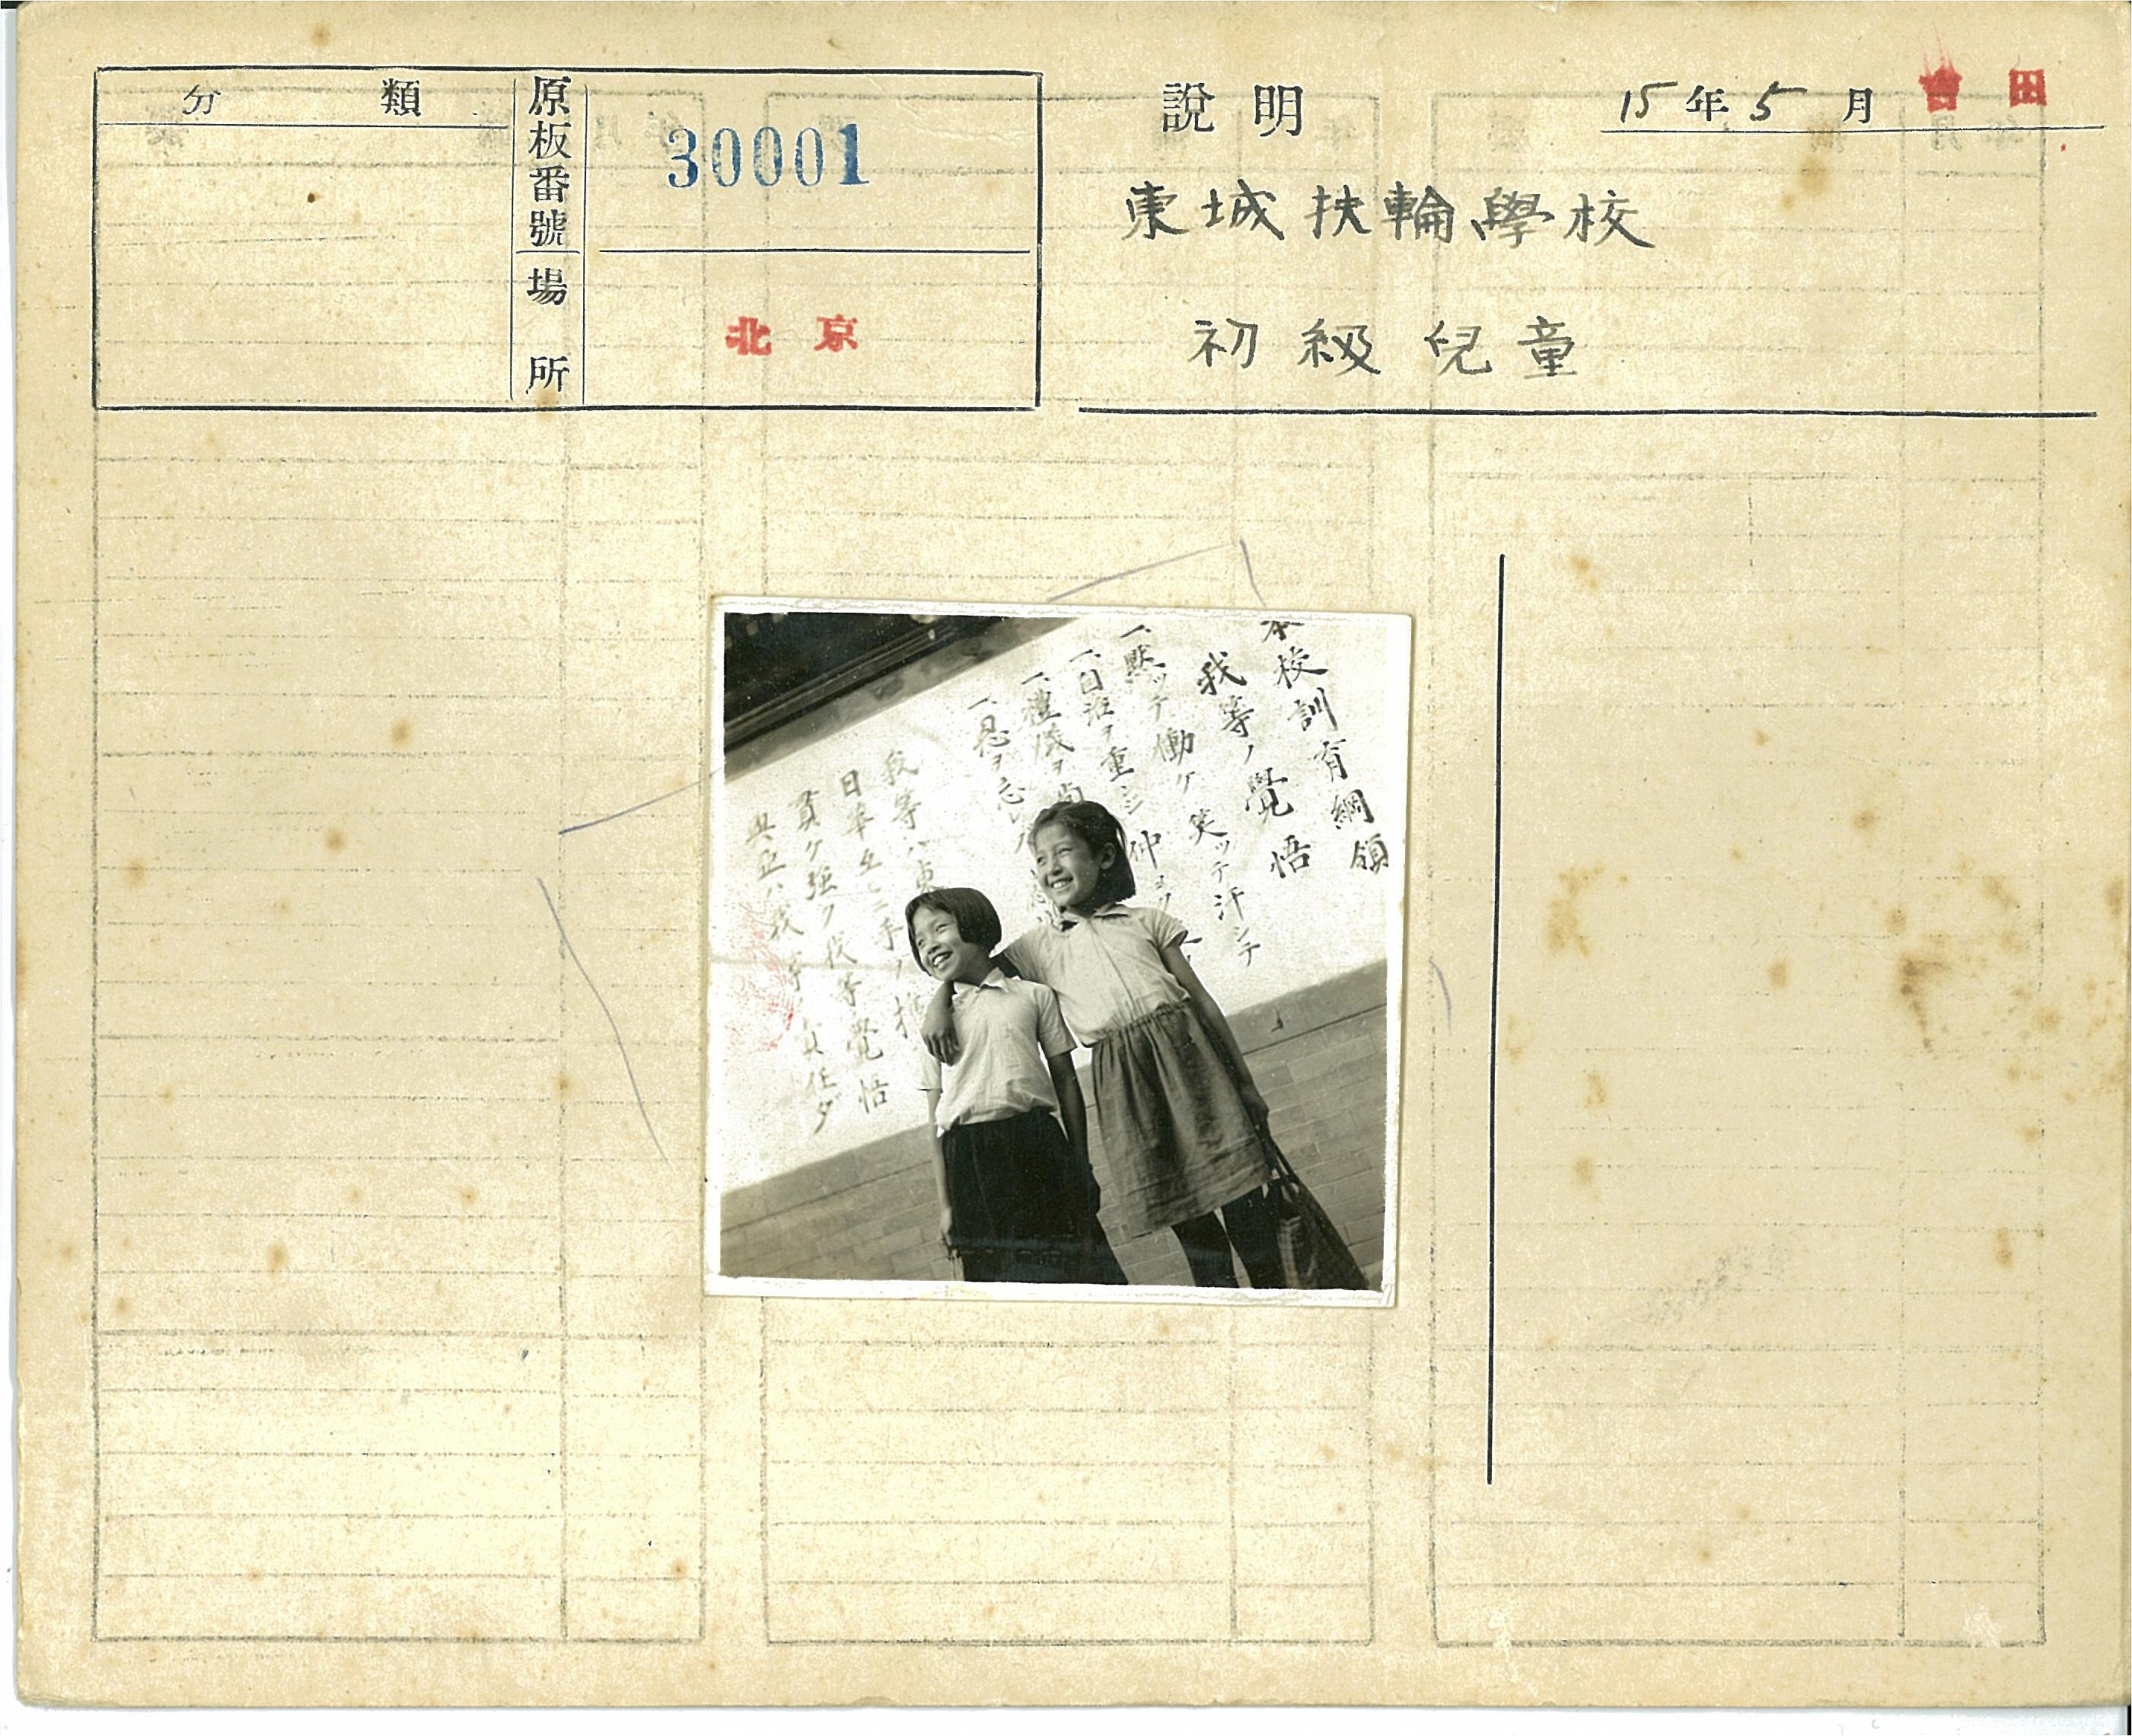 分類
原板番號
30001
場所
北京
說明
15年5月
吉田
東城扶輪學校
初級兒童
本校訓育綱領
我等ノ覺悟
一、黙ッテ働ケ笑ッテ汗シテ
一、日
一、禮儀ヲ
一、恩ヲ忘
我等ハ東
日華互ニ手ノ
強ク我等覺悟
興亞ハ我等ノ責任ダ